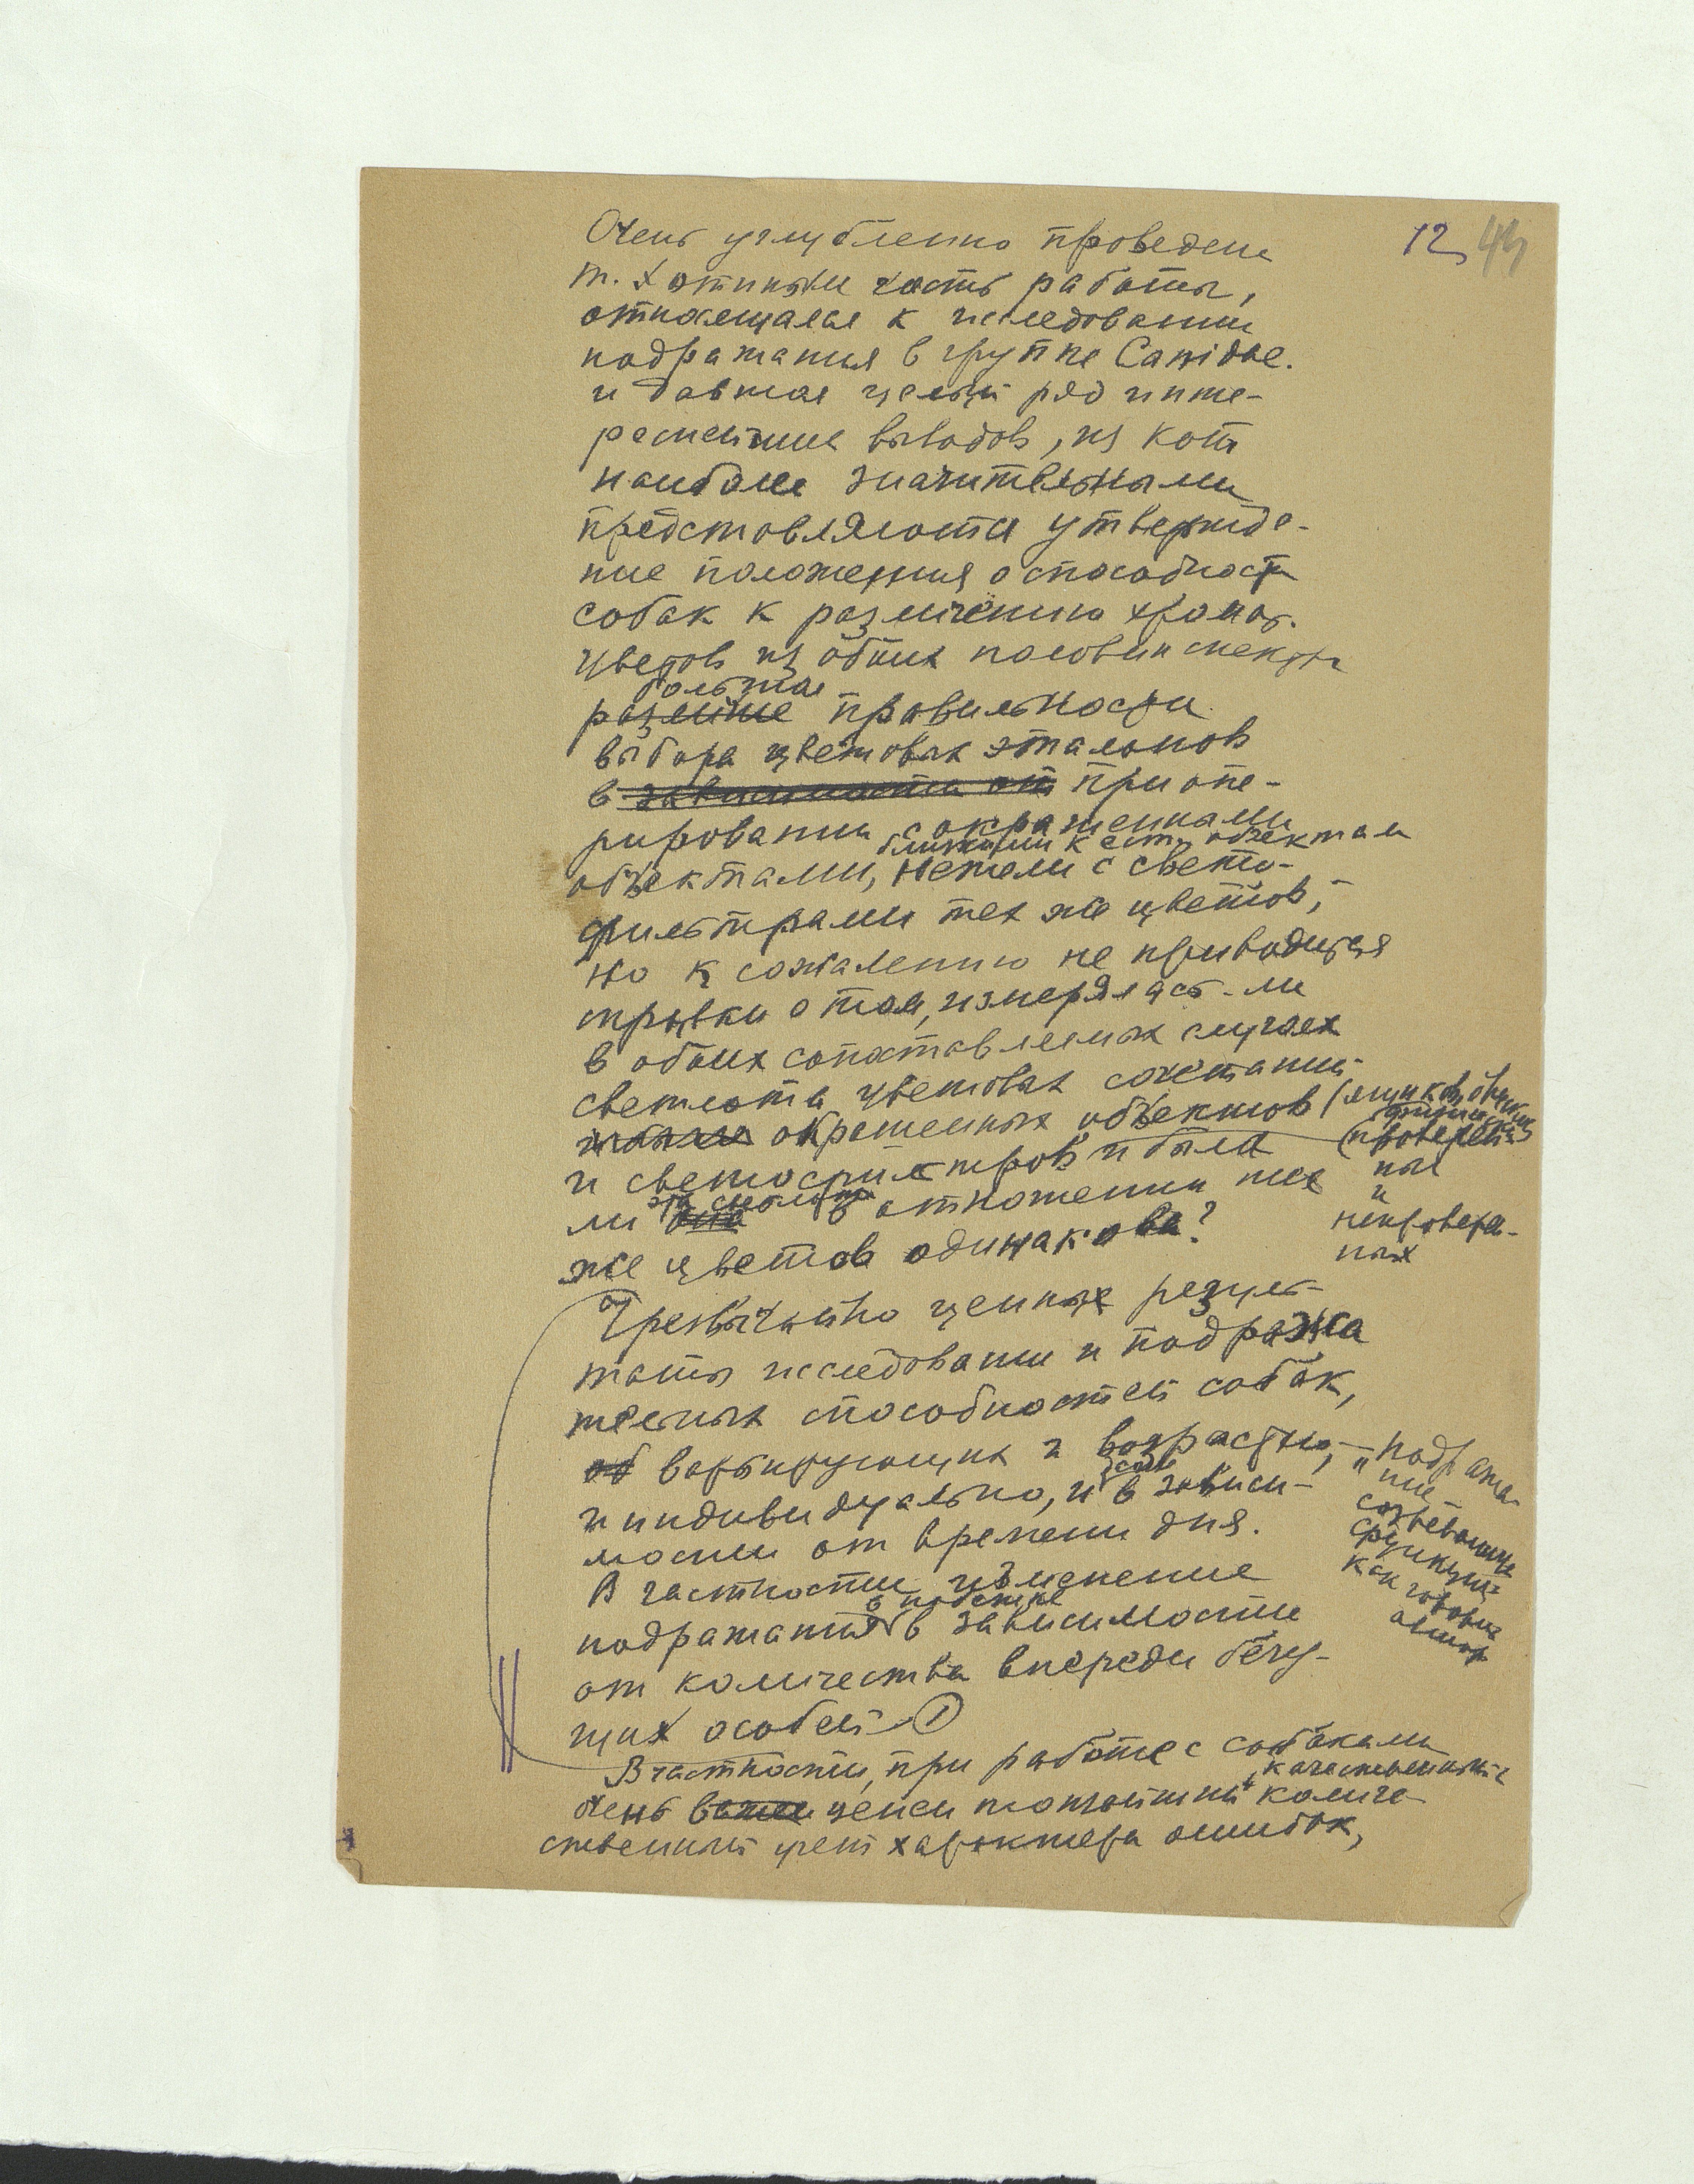 12 43
Очень углубленно проведена
т. Хотиным часть работы,
относящаяся к исследованию
подражания в группе Canidae.
и давшая целый ряд инте-
реснейших выводов, из кот
наиболее значительными
представляются утвержде-
ние положения о способности
собак к различению хромат.
цветов из обоих половин спектра
большая
различие правильности
выбора цветовых эталонов
в зависимости от при опе-
рировании с окрашенными
близкими к ест. объектам
объектами, нежели с свето-
фильтрами тех же цветов,
но к сожалению не приводится
справки о том, измерялась-ли
в обоих сопоставляемых случаях
светлота цветовых сочетаний
окрашенных объектов (ящиков,
и светофильтров и была
(проверен-
ных
и
непроверен-
ных
ли эта светлота она в отношении тех
же цветов одинакова?
Чрезвычайно ценны резуль-
таты исследования и подража
тельных способностей собак,
об варьирующих и возрастно,
и индивидуально, и даже в зависи-
мости от времени дня.
"подража-
ние
созревающие
функции
как говорит
автор
В частности изменение
подражания в зависимости
от количества впереди бегу-
щих особей (1)
В частности, при работе с собаками
очень важен ценен тончайший качественный и количе-
ственный учет характера ошибок,